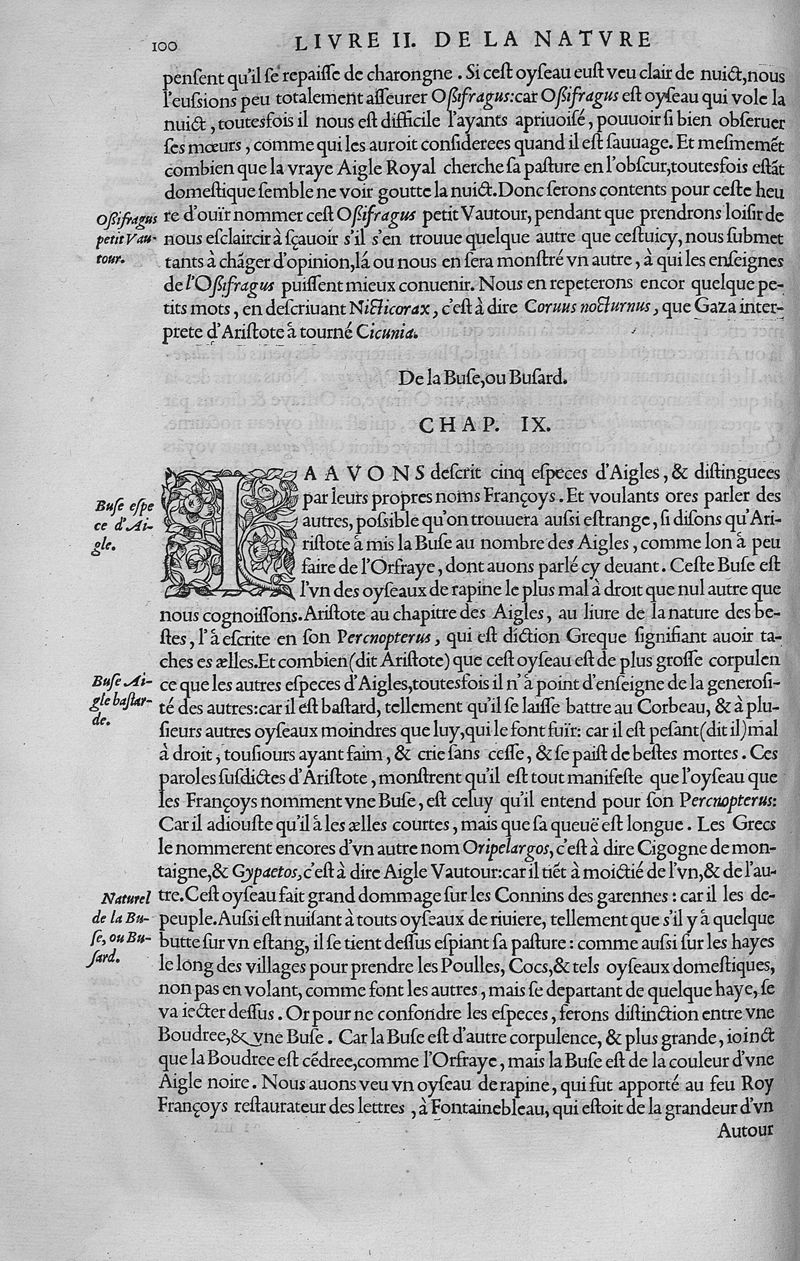 100 LIVRE II. DE LA NATVRE
penſent qu'il ſe repaiſſe de charongne. Si ceſt oyſeau euſt veu clair de nuict, nous
l'euſſions peu totalement aſſeurer Oßifragus: car Oßifragus eſt oyſeau qui vole la
nuict, toutesfois il nous eſt difficile l'ayants apriuoiſé, pouuoir ſi bien obſeruer
ſes mœurs, comme qui les auroit conſiderees quand il eſt ſauuage. Et meſmemẽt
combien que la vraye Aigle Royal cherche ſa paſture en l'obſcur, toutesfois eſtãt
domeſtique ſemble ne voir goutte la nuict. Donc ſerons contents pour ceſte heu
Oßifragus
petit Vau-
tour.
re d'ouïr nommer ceſt Oßifragus petit Vautour, pendant que prendrons loiſir de
nous eſclaircir à ſçauoir s'il s'en trouue quelque autre que ceſtuicy, nous ſubmet
tants à chãger d'opinion, lá ou nous en ſera monſtré vn autre, à qui les enſeignes
de l'Oßifragus puiſſent mieux conuenir. Nous en repeterons encor quelque pe-
tits mots, en deſcriuant Nicticorax, c'eſt à dire Coruus nocturnus, que Gaza inter-
prete d'Ariſtote à tourné Cicunia.
De la Buſe, ou Buſard.
CHAP. IX.
IA AVONS deſcrit cinq eſpeces d'Aigles, & diſtinguees
par leurs propres noms Françoys. Et voulants ores parler des
Buſe eſpe
ce d'Ai-
gle.
autres, poſsible qu'on trouuera auſsi eſtrange, ſi diſons qu'Ari-
riſtote à mis la Buſe au nombre des Aigles, comme lon à peu
faire de l'Orfraye, dont auons parlé cy deuant. Ceſte Buſe eſt
l'vn des oyſeaux de rapine le plus mal à droit que nul autre que
nous cognoiſſons. Ariſtote au chapitre des Aigles, au liure de la nature des be-
ſtes, l'à eſcrite en ſon Percnopterus, qui eſt diction Greque ſignifiant auoir ta-
ches es ælles. Et combien (dit Ariſtote) que ceſt oyſeau eſt de plus groſſe corpulen
Buſe Ai-
gle baſtar-
de.
ce que les autres eſpeces d'Aigles, toutesfois il n'à point d'enſeigne de la generoſi-
té des autres: car il eſt baſtard, tellement qu'il ſe laiſſe battre au Corbeau, & à plu-
ſieurs autres oyſeaux moindres que luy, qui le font fuïr: car il eſt peſant (dit il) mal
à droit, touſiours ayant faim, & crie ſans ceſſe, & ſe paiſt de beſtes mortes. Ces
paroles ſuſdictes d'Ariſtote, monſtrent qu'il eſt tout manifeſte que l'oyſeau que
les Françoys nomment vne Buſe, eſt celuy qu'il entend pour ſon Percnopterus:
Car il adiouſte qu'il à les ælles courtes, mais que ſa queuë eſt longue. Les Grecs
le nommerent encores d'vn autre nom Oripelargos, c'eſt à dire Cigogne de mon-
taigne, & Gypaetos, c'eſt à dire Aigle Vautour: car il tiẽt à moictié de l'vn, & de l'au-
Naturel
de la Bu-
ſe, ou Bu-
ſard.
tre. Ceſt oyſeau fait grand dommage ſur les Connins des garennes: car il les de-
peuple. Auſsi eſt nuiſant à touts oyſeaux de riuiere, tellement que s'il y à quelque
butte ſur vn eſtang, il ſe tient deſſus eſpiant ſa paſture: comme auſsi ſur les hayes
le long des villages pour prendre les Poulles, Cocs, & tels oyſeaux domeſtiques,
non pas en volant, comme font les autres, mais ſe departant de quelque haye, ſe
va iecter deſſus. Or pour ne confondre les eſpeces, ferons diſtinction entre vne
Boudree, & vne Buſe. Car la Buſe eſt d'autre corpulence, & plus grande, ioinct
que la Boudree eſt cẽdree, comme l'Orfraye, mais la Buſe eſt de la couleur d'vne
Aigle noire. Nous auons veu vn oyſeau de rapine, qui fut apporté au feu Roy
Françoys reſtaurateur des lettres, à Fontainebleau, qui eſtoit de la grandeur d'vn
Autour